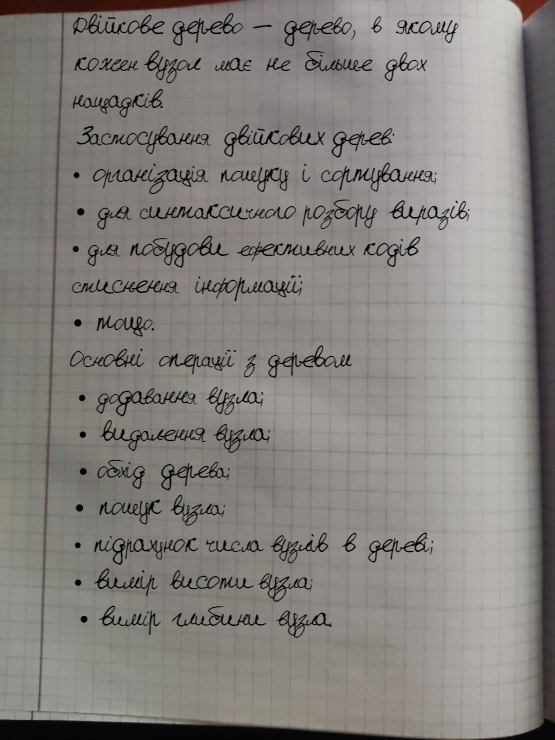 Двійкове дерево — дерево, в якому
кожен вузол має не більше двох
нащадків.
Застосування двійкових дерев:
• організація пошуку і сортування;
• для синтаксичного розбору виразів;
• для побудови ефективних кодів
стиснення інформації;
• тощо.
Основні операції з деревом
• додавання вузла;
• видалення вузла;
• обхід дерева;
• пошук вузла;
• підрахунок числа вузлів в дереві;
• вимір висоти вузла;
• вимір глибини вузла.